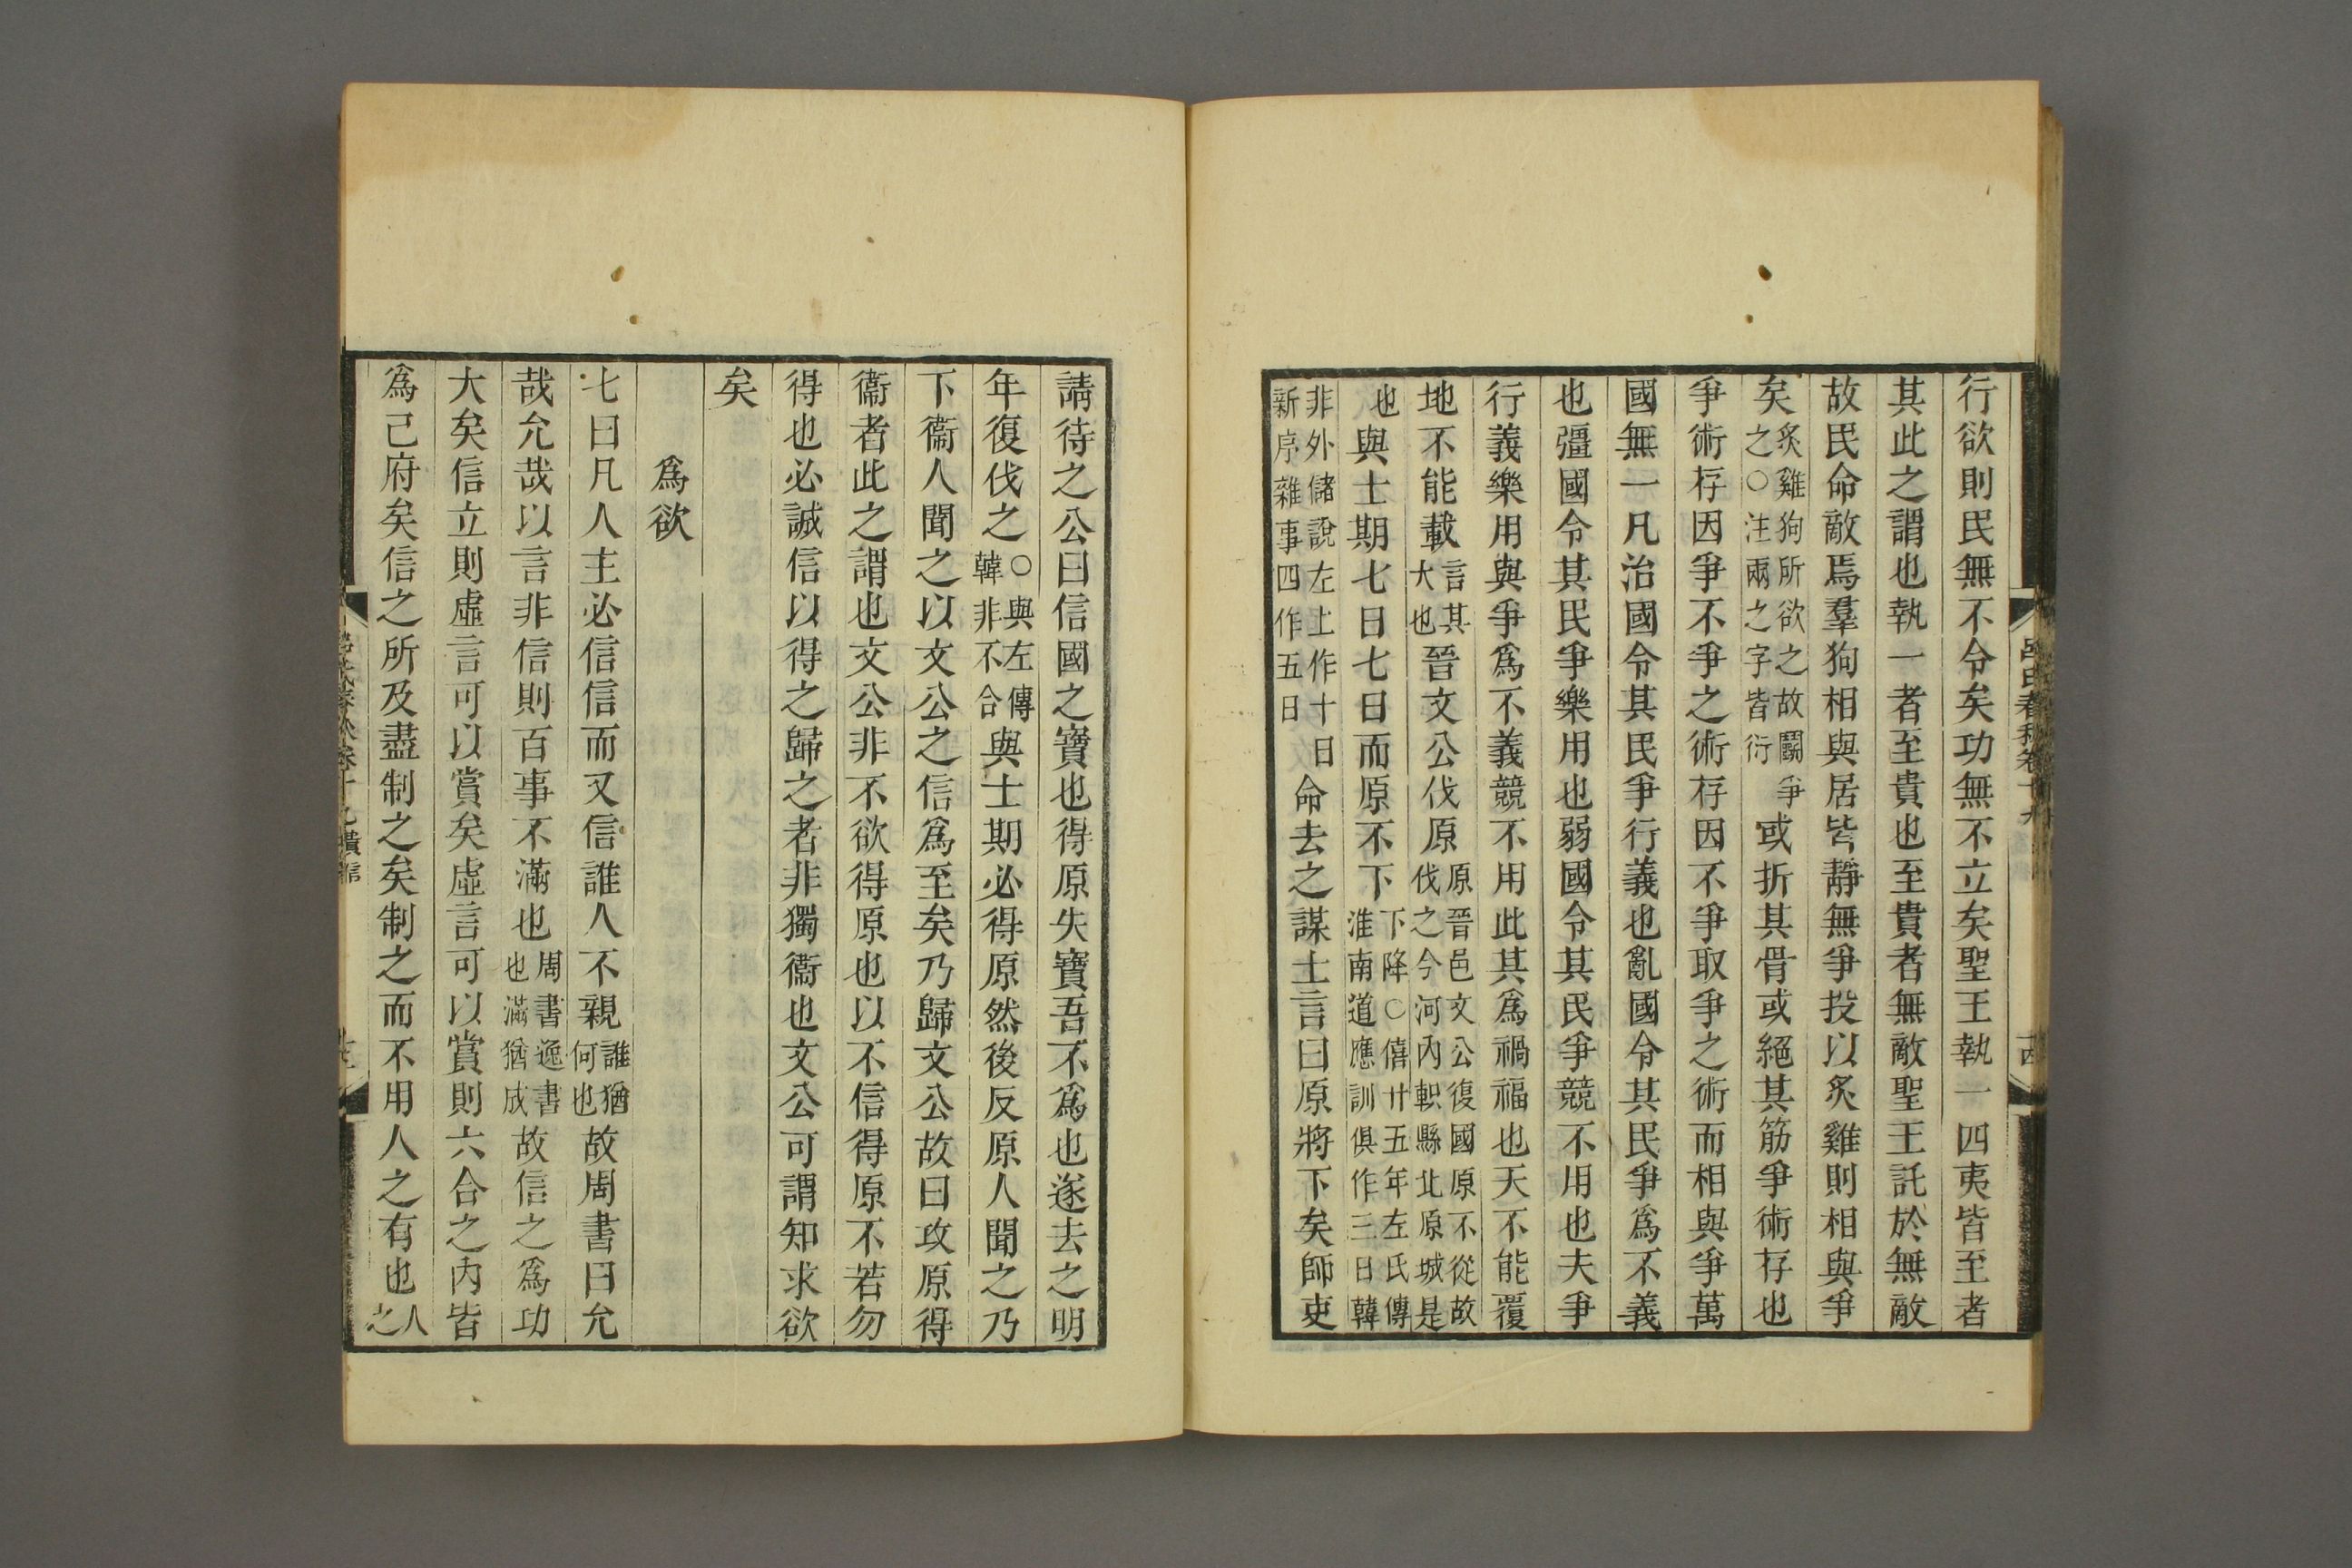 呂氏春秋卷十九
十四
行欲則民無不令矣功無不立矣聖王執一四夷皆至者
其此之謂也執一者至貴也至貴者無敵聖王託於無敵
故民命敵焉羣狗相與居皆靜無爭投以炙雞則相與爭
矣炙雞狗所欲之故鬭爭之○注兩之字皆衍或折其骨或絕其筋爭術存也
爭術存因爭不爭之術存因不爭取爭之術而相與爭萬
國無一凡治國令其民爭行義也亂國令其民爭爲不義
也彊國令其民爭樂用也弱國令其民爭競不用也夫爭
行義樂用與爭爲不義競不用此其爲禍福也天不能覆
地不能載言其大也晉文公伐原原晉邑文公復國原不從故伐之今河內軹縣北原城是
也與士期七日七日而原不下下降○僖廿五年左氏傳淮南道應訓俱作三日韓
非外儲說左上作十日新序雜事四作五日命去之謀士言曰原將下矣師吏
請待之公曰信國之寶也得原失寶吾不爲也遂去之明
年復伐之○與左傳韓非不合與士期必得原然後反原人聞之乃
下衞人聞之以文公之信爲至矣乃歸文公故曰攻原得
衞者此之謂也文公非不欲得原也以不信得原不若勿
得也必誠信以得之歸之者非獨衞也文公可謂知求欲
矣
爲欲
七曰凡人主必信信而又信誰人不親誰猶何也故周書曰允
哉允哉以言非信則百事不滿也周書逸書也滿猶成故信之爲功
大矣信立則虛言可以賞矣虛言可以賞則六合之內皆
爲己府矣信之所及盡制之矣制之而不用人之有也人之
呂氏春秋卷十九貴信